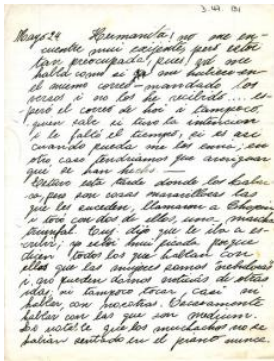 3.47.191
Mayo 24 Hermanita, no me en-
cuentre mui exijente, pero estoi
tan preocupada, pues, yd me
habló como si me hubiese en
el mismo correo mandado los
versos i no los he recibido... es-
peré el correo de hoi i tampoco,
quien sabe si tuvo la intencion
i le faltó el tiempo, si es así
cuando pueda me los envía; en
otro caso tendríamos que averiguar
que se han hecho —
Estuve esta tarde donde los
son cosas maravillosas las
que les suceden, llamaron a Chopin
i tocó con dos de ellos, una marcha
triunfal. dijo que le iba a es-
cribir; yo estoi mui picada porque
dicen todos los que hablan con
ellos que las mujeres somos
i no pueden darnos noticias de otras
vidas, ni tampoco tocar, casi ni
hablar, con nosotras. Escasamente
hablar con las que son medium.
de que los muchachos no se
habían sentado en el piano nunca